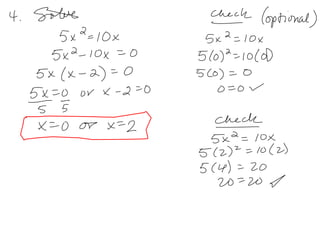 4. Solve
5x²=10x
5x²-10x=0
5x(x-2)=0
5x=0 or x-2=0
5 5
x=0 or x=2
check (optional)
5x²=10x
5(0)²=10(0)
5(0)=0
0=0✓
check
5x²=10x
5(2)²=10(2)
5(4)=20
20=20✓